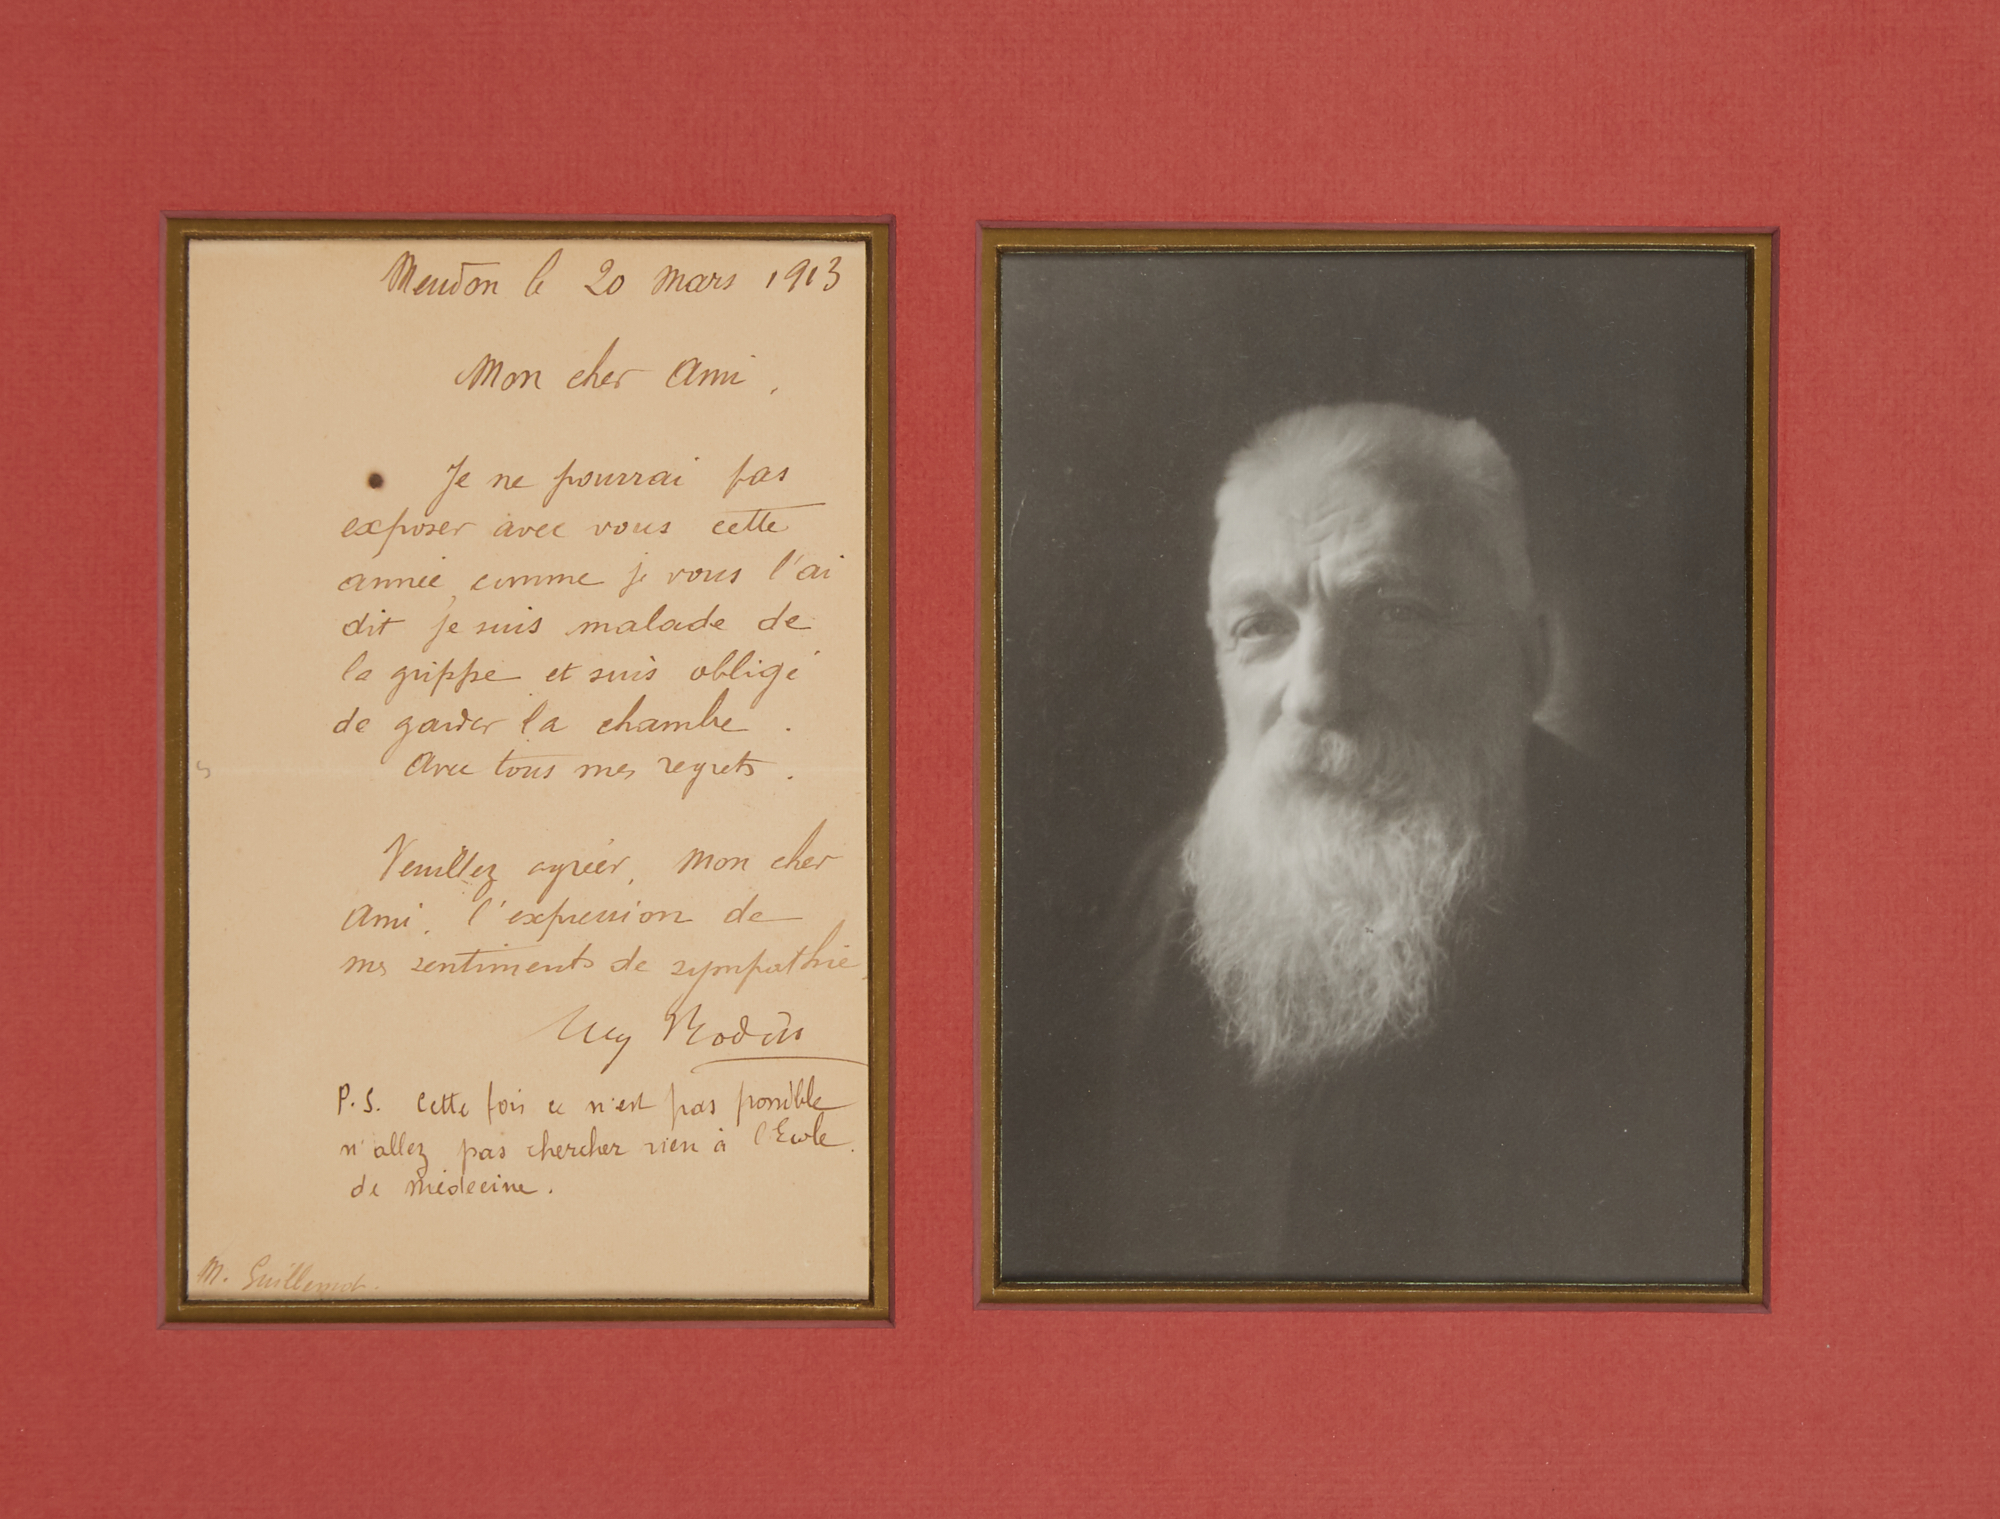 Meudon le 20 mars 1913
Mon cher Ami,
Je ne pourrai pas
exposer avec vous cette
année, comme je vous l'ai
dit je suis malade de
la grippe et suis obligé
de garder la chambre.
Avec tous mes regrets.
Veuillez agréer, mon cher
Ami, l'expression de
mes sentiments de sympathie
Aug Rodin
P.S. Cette fois ce n'est pas possible
n'allez pas chercher rien à l'Ecole
de médecine.
M. Guillemot.